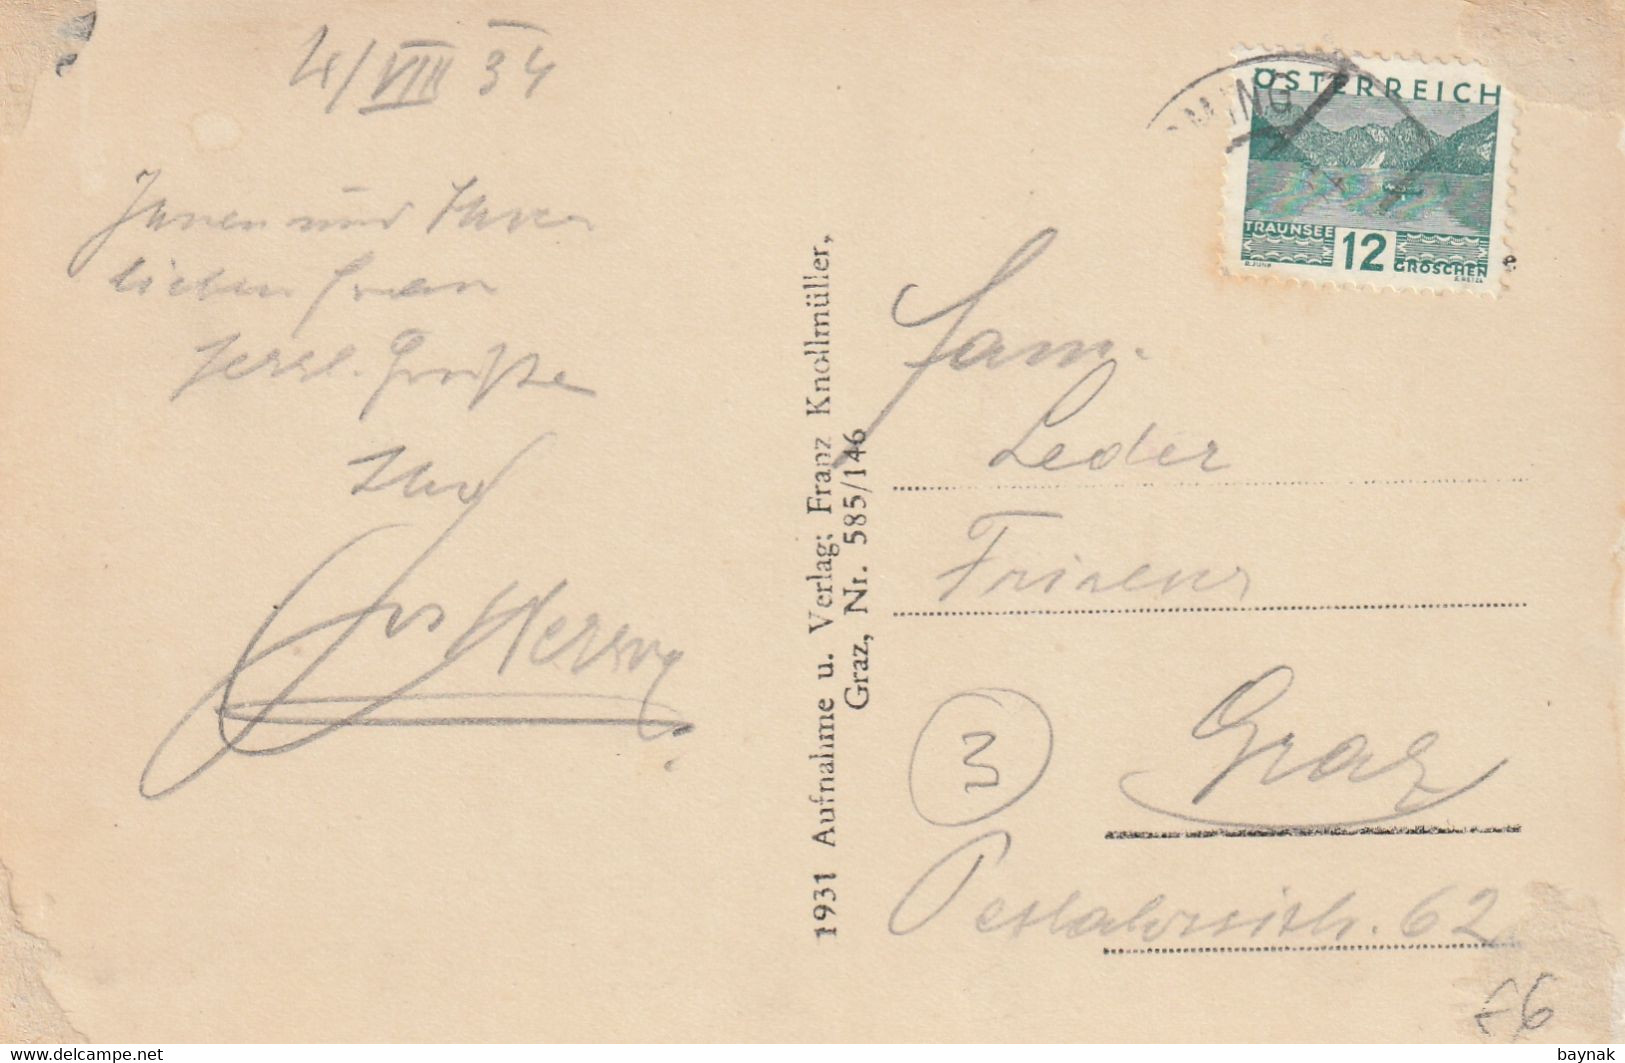 4/VIII 34
Ihnen und Ihrer
lieben Frau
herzl. Grüße
Ihr
ÖSTERREICH
TRAUNSEE
12
GROSCHEN
MING
1931 Aufnahme u. Verlag: Franz Knollmüller,
Graz, Nr. 585/146
Fam.
Leder
Friseur
3
Graz
62
£6
baynak